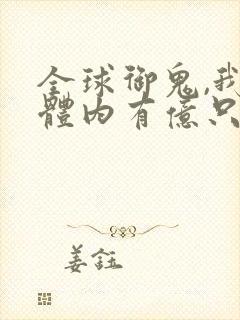 全球御鬼,我
體內有億只
姜鈺